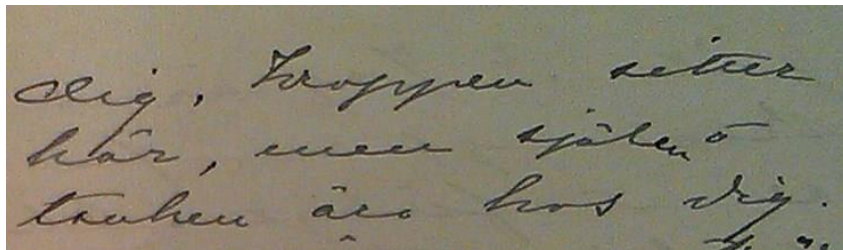 dig. Kroppen sitter
här, men själen o
tanken äro hos dig.